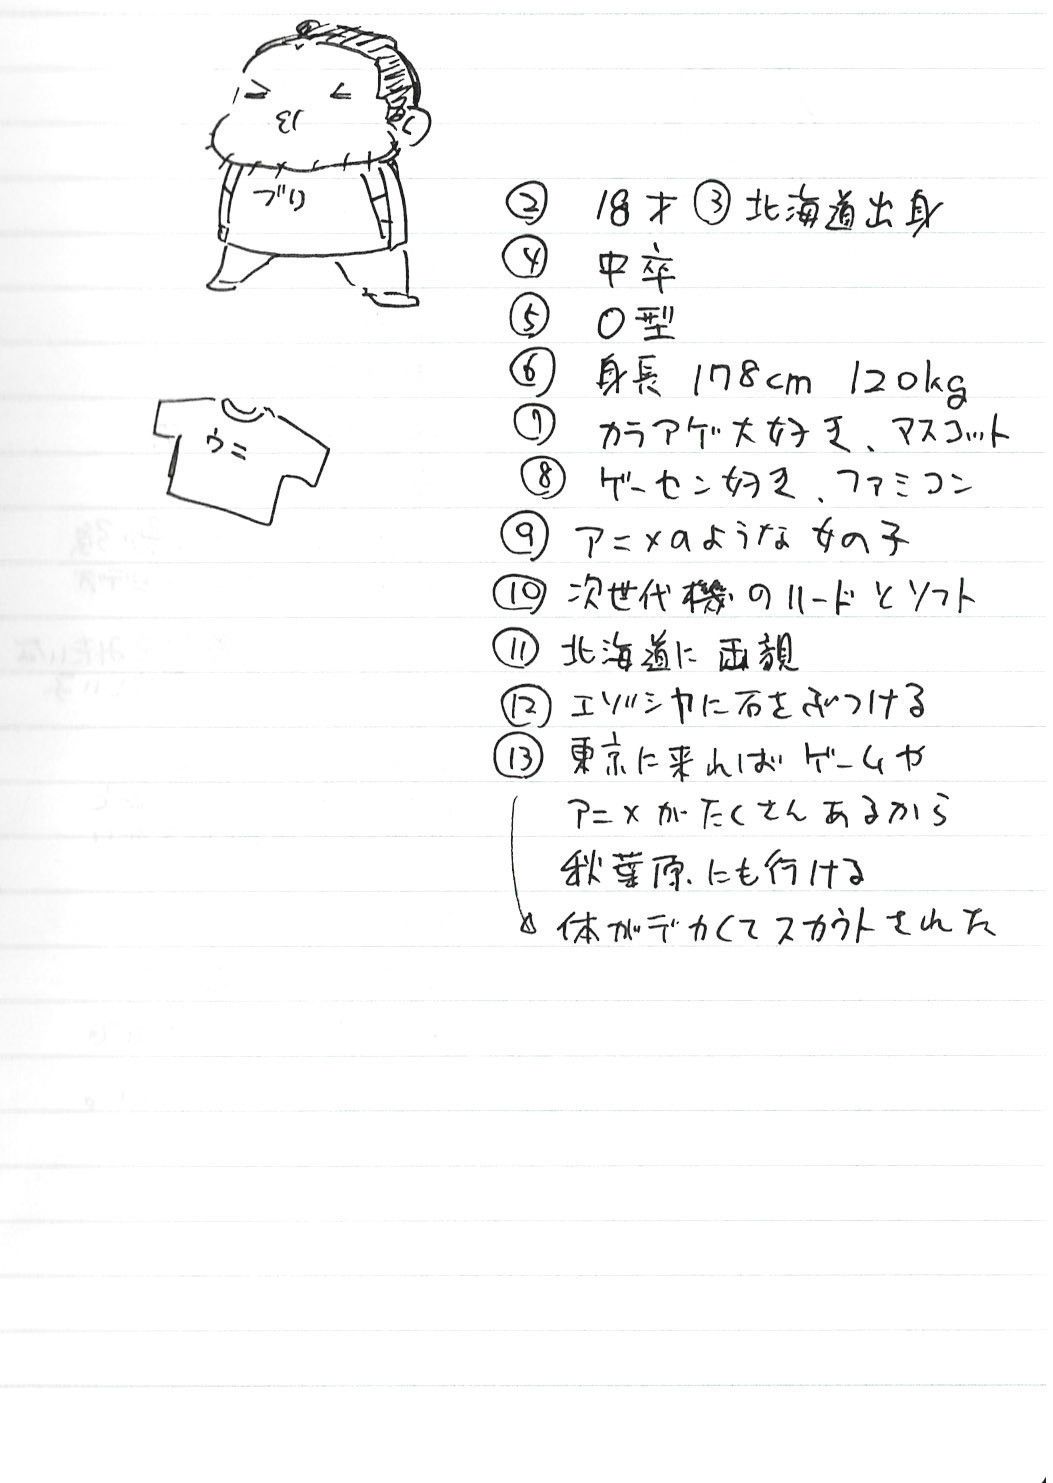 ブリ
② 18才 ③ 北海道出身
④ 中卒
⑤ O型
⑥ 身長 178cm 120kg
⑦ カラアゲ大好き、マスコット
ウニ
⑧ ゲーセン好き、ファミコン
⑨ アニメのような女の子
⑩ 次世代機のハードとソフト
⑪ 北海道に両親
⑫ エゾシカに石をぶつける
⑬ 東京に来ればゲームや
アニメがたくさんあるから
秋葉原にも行ける
体がデカくてスカウトされた